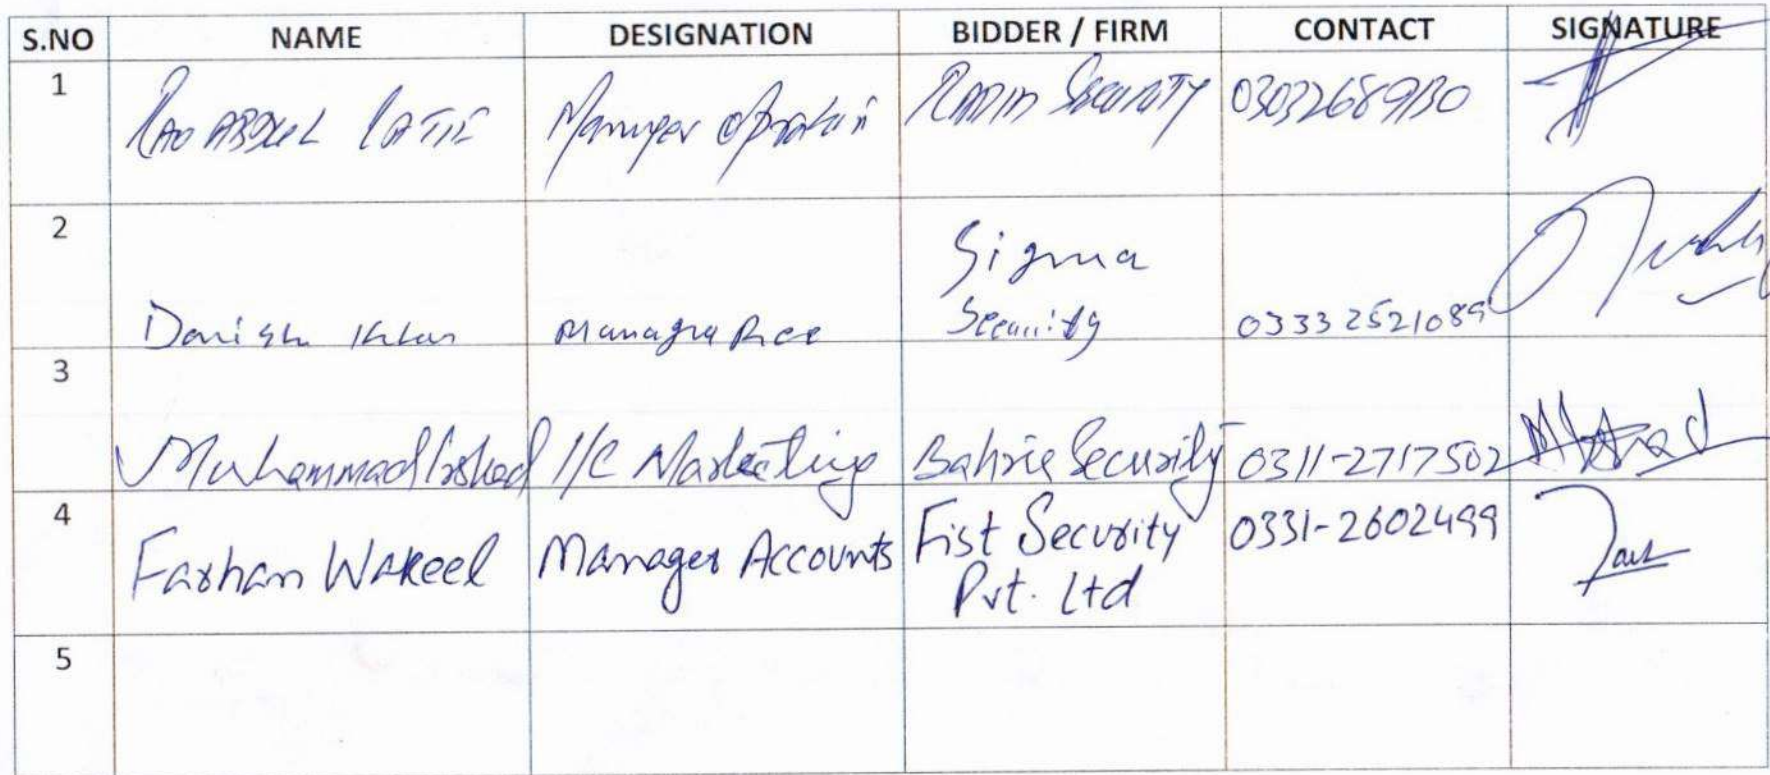 S.NO NAME DESIGNATION BIDDER / FIRM CONTACT SIGNATURE
1 RAO ABDUL LATIF Manager Operation Security 03032689130
2 Sigma
Danish Khan Security 03332521089
3 Muhammad Irshad I/C Marketing Bahria Security 0311-2717502
4 Farhan Wakeel Manager Accounts Fist Security 0331-2602499
Pvt. Ltd
5